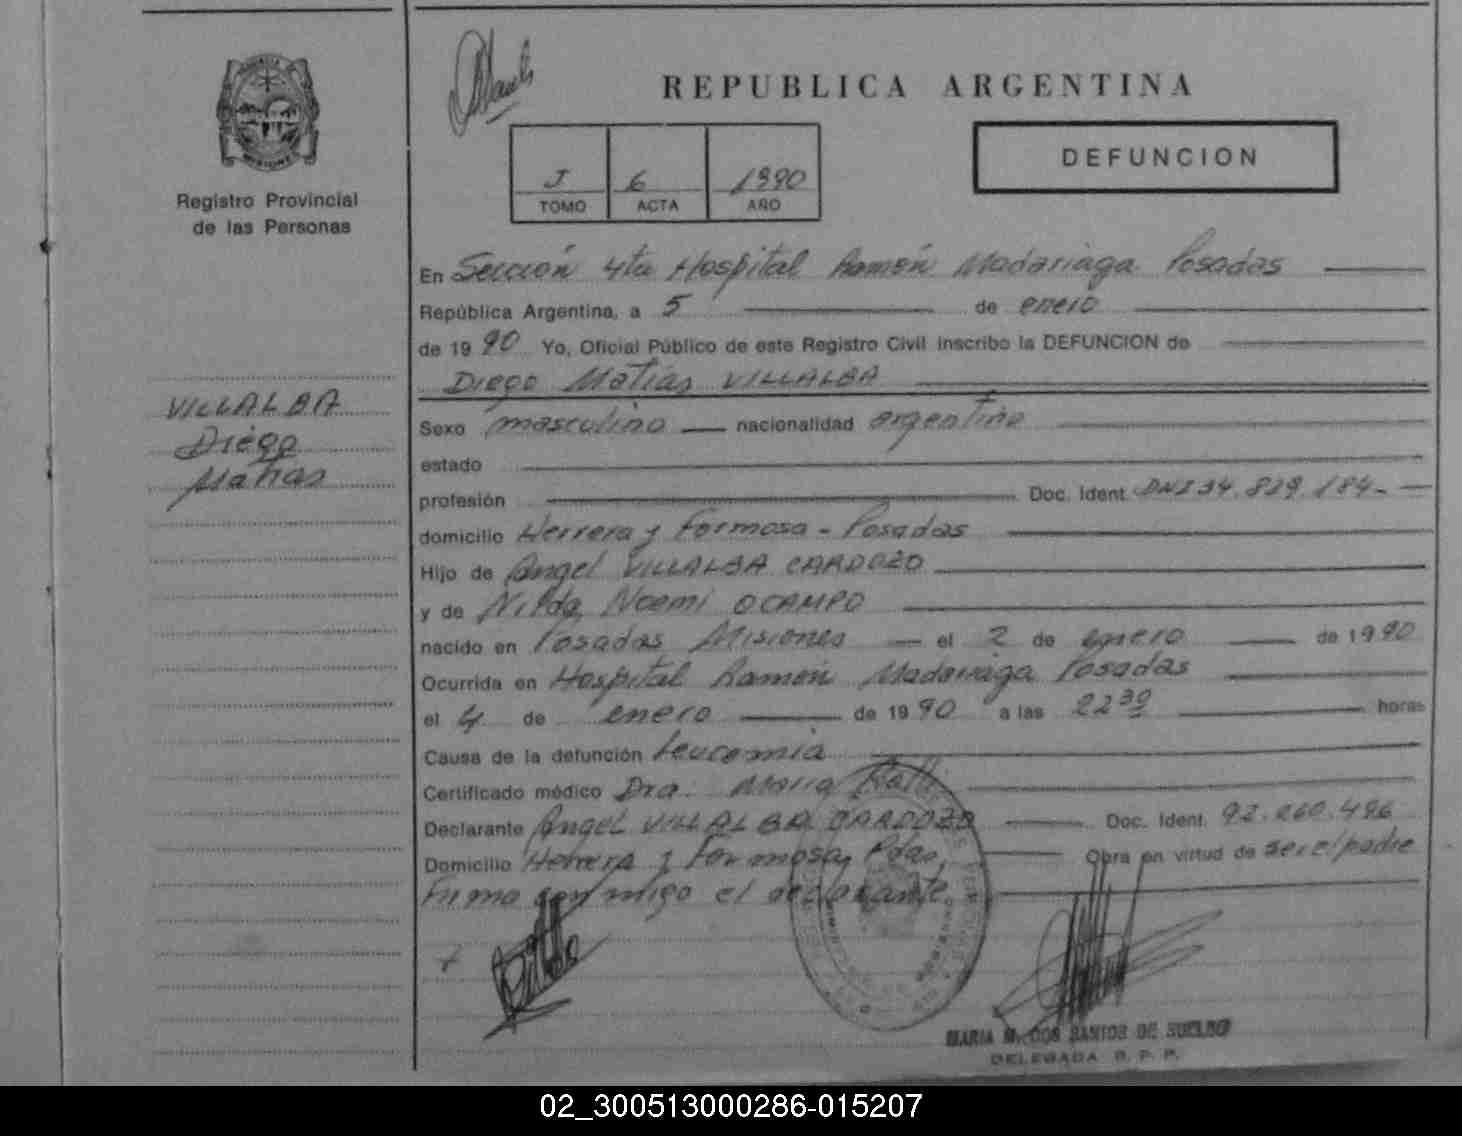 REPUBLICA ARGENTINA
MISIONES
Registro Provincial
de las Personas
J 6 1990
TOMO ACTA AÑO
DEFUNCION
VILLALBA
Diego
Matías
En Sección 4ta Hospital Ramón Madariaga Posadas
República Argentina, a 5 de enero
de 1990 Yo, Oficial Público de este Registro Civil inscribo la DEFUNCION de
Diego Matías VILLALBA
Sexo masculino nacionalidad argentina
estado
profesión Doc. Ident. DNI 34.829.184-
domicilio Herrera y Formosa - Posadas
Hijo de Angel VILLALBA CARDOZO
y de Nilda Noemi OCAMPO
nacido en Posadas Misiones el 2 de enero de 1990
Ocurrida en Hospital Ramón Madariaga Posadas
el 4 de enero de 1990 a las 22 30 horas
Causa de la defunción Leucemia
Certificado médico Dra. Maria
Declarante Angel VILLALBA CARDOZO Doc. Ident. 92.260.496
Domicilio Herrera y Formosa, Pdas, Obra en virtud de ser el padre
Firma conmigo el declarante
MARIA M. DOS SANTOS DE SUELDO
DELEGADA R. P. P.
02_300513000286-015207